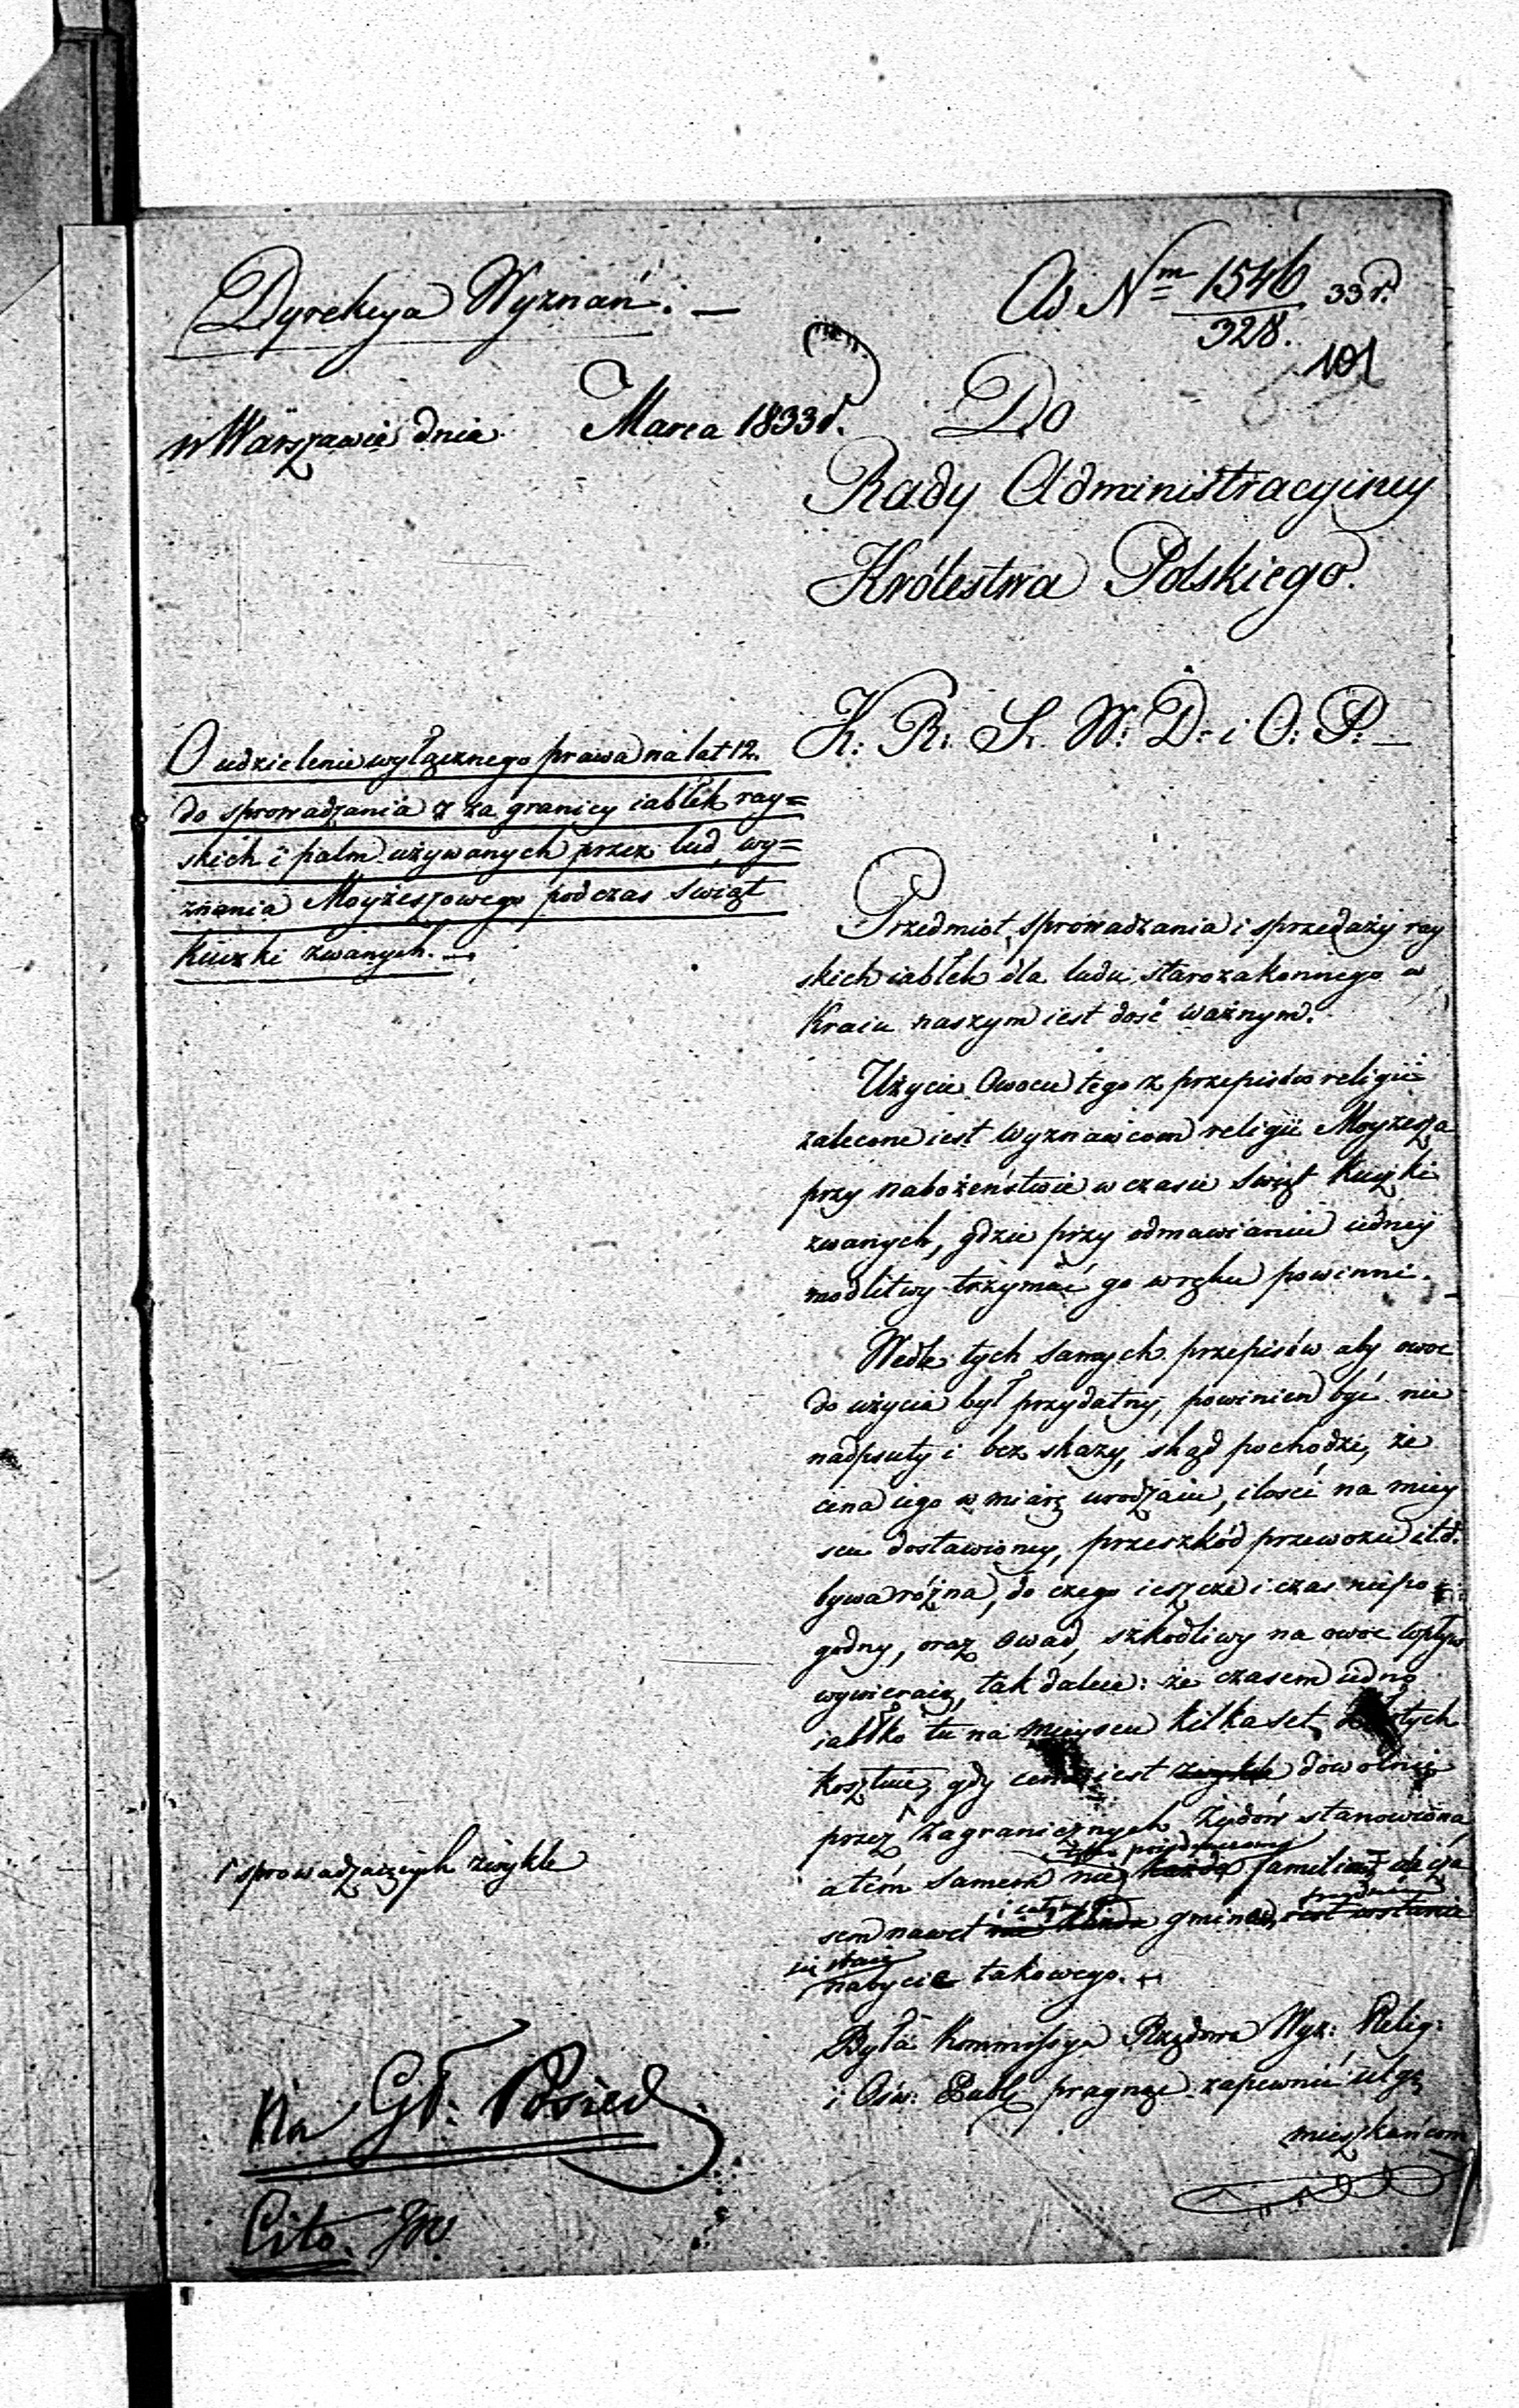 Dyrekcya Wyznań: —
w Warszawie dnia Marca 1833 r.
O udzielenie wyłącznego prawa na lat 12.
do sprowadzania z za granicy iabłek ray=
skich i palm używanych przez lud wy=
znania Moyżeszowego podczas Swiąt
Kuczki zwanych. —
sprowadzaiących zwykle
Na Gł: Posied.
Cito.
Ad Nm 1546/328. 33 r.
101
Do
Rady Administracyiney
Królestwa Polskiego.
K: R: S. W: D: i O: P: —
Przedmiot sprowadzania i sprzedaży ray
skich iabłek dla ludu starozakonnego w
Kraiu naszym iest dość ważnym.
Użycie Owocu tego z przepisów religii
zalecone iest Wyznawcom religii Moyżesza
przy nabożeństwie w czasie Swiąt Kuczki
zwanych, gdzie przy odmawianiu iedney
modlitwy trzymać go w ręku powinni.
Wedle tych samych przepisów aby owoc
do użycia był przydatny, powinien być nie
nadpsuty i bez skazy, skąd pochodzi, że
cena iego w miarę urodzaiu, ilości na miey
scu dostawioney, przeszkód przewozu i t.d.
bywa różna, do czego ieszcze i czas niepo
godny, oraz owad, szkodliwy na owoc wpływ
wywieraią, tak dalece: że czasem iedno
iabłko tu na mieyscu kilkaset złotych
kosztuie, gdy cena iest zwykle dowolnie
przez Zagranicznych Żydów stanowiona,
a tém samem każda familia
sem nawet gmina
nabycie takowego.
Była Kommissya Rządowa Wyz: Relig:
i Ośw: Publ: pragnąc zapewnić ulgę
mieszkańcom